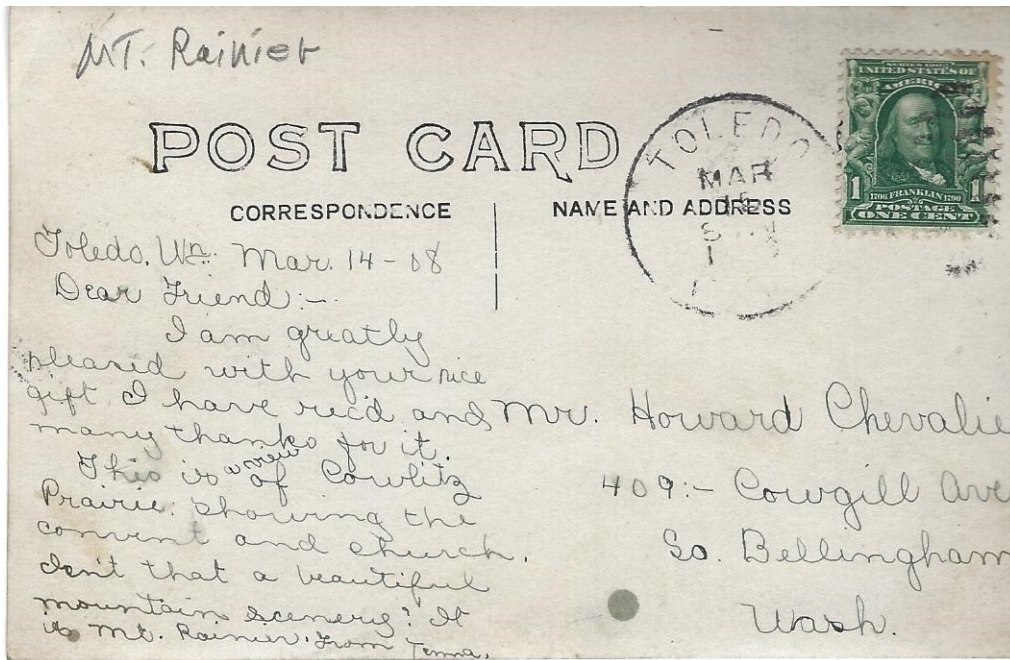 MT. Rainier
POST CARD
CORRESPONDENCE
NAME AND ADDRESS
TOLEDO
MAR
SERIES 1902
UNITED STATES OF
AMERICA
1 1706 FRANKLIN 1790 1
POSTAGE
ONE CENT
Toledo, Wn. Mar. 14-08
Dear Friend:-
I am greatly
pleased with your nice
gift I have rec'd and
many thanks for it.
This is a view of Cowlitz
Prairie: showing the
convent and church.
Isn't that a beautiful
mountain scenery? It
is Mt. Rainier. From Temma.
Mr. Howard Chevalie
409:- Cowgill Ave
So. Bellingham
Wash.